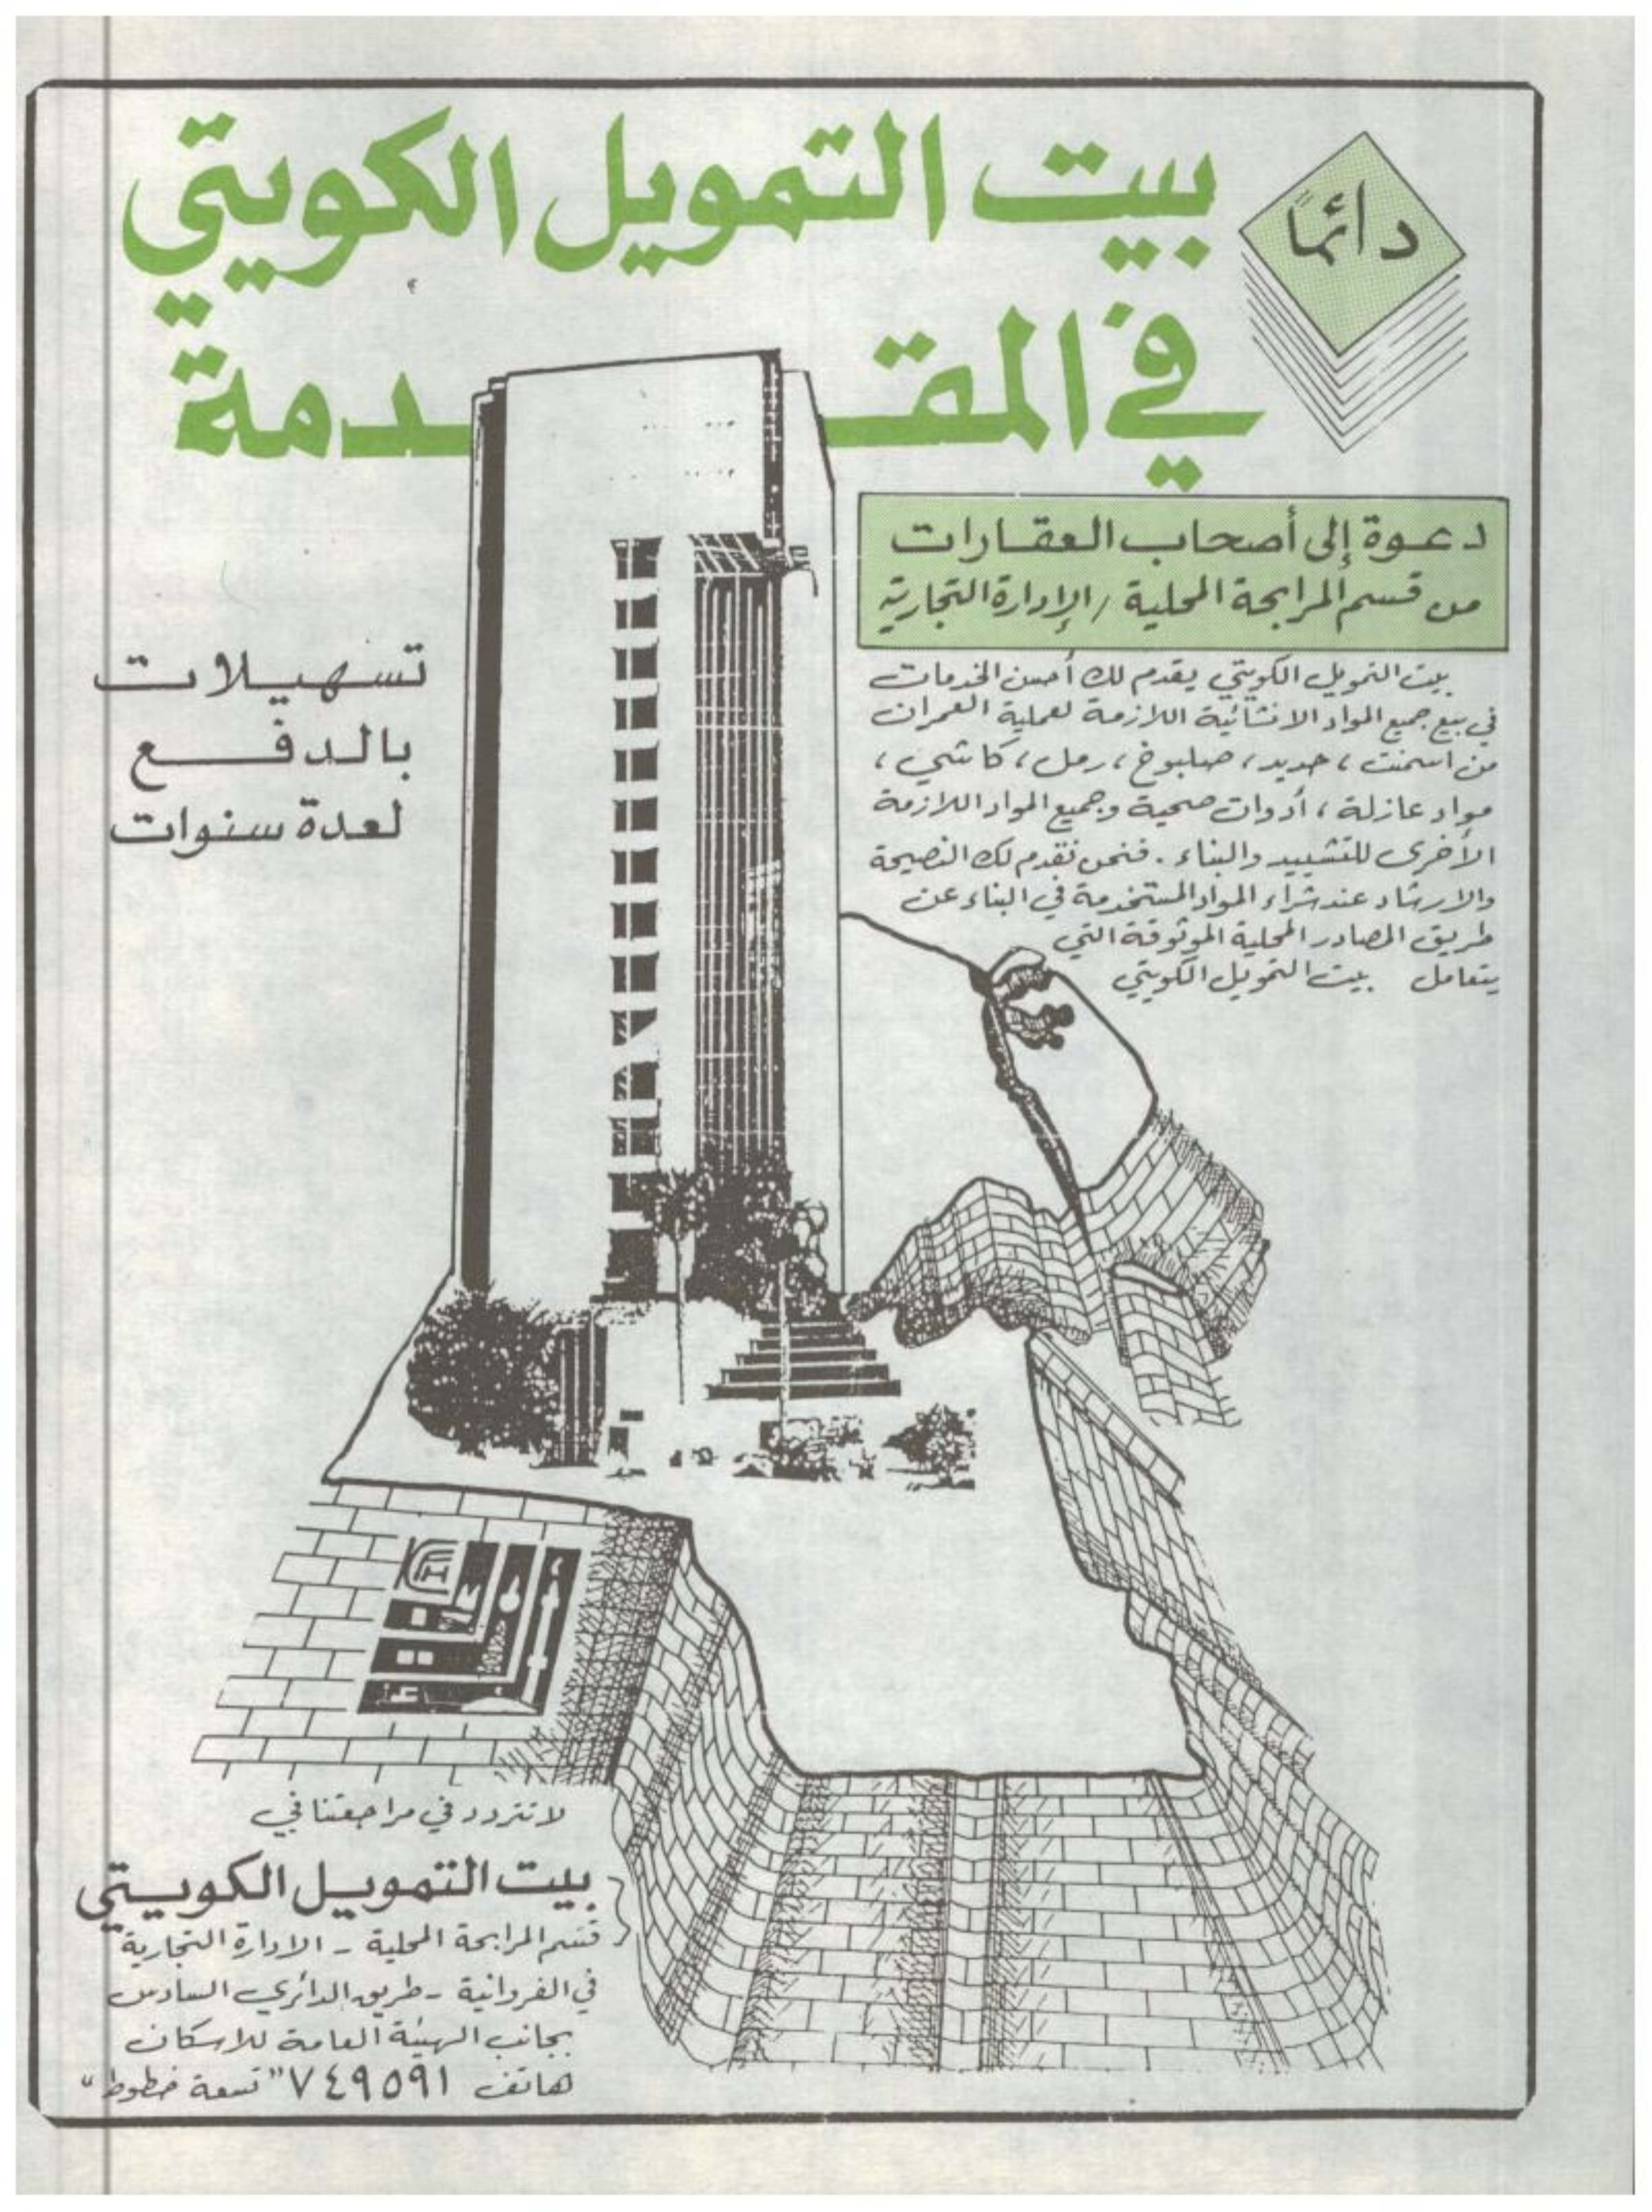 دائمًا
بيت التمويل الكويتي
في المقدمة
دعوة إلى أصحاب العقارات
من قسم المرابحة المحلية / الإدارة التجارية
بيت التمويل الكويتي يقدم لك أحسن الخدمات
في بيع جميع المواد الانشائية اللازمة لعملية العمران
من اسمنت ، حديد ، صلبوخ ، رمل ، كاشي ،
مواد عازلة ، أدوات صحية وجميع المواد اللازمة
الأخرى للتشييد والبناء . فنحن نقدم لك النصيحة
والارشاد عند شراء المواد المستخدمة في البناء عن
طريق المصادر المحلية الموثوقة التي
يتعامل بيت التمويل الكويتي
تسهيلات
بالدفع
لعدة سنوات
لا تتردد في مراجعتنا في
بيت التمويل الكويتي
قسم المرابحة المحلية - الادارة التجارية
في الفروانية - طريق الدائري السادس
بجانب الهيئة العامة للاسكان
هاتف ٧٤٩٥٩١ "تسعة خطوط"